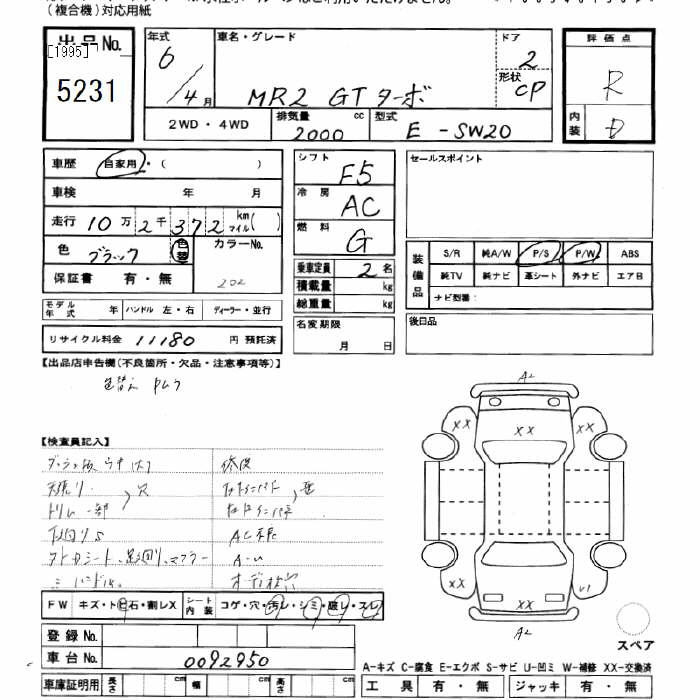 (複合機)対応用紙
出品No.
[1995]
5231
年式 6/4月
車名・グレード
MR2 GT ターボ
ドア 2
形状 CP
評価点
R
内装 D
2WD・4WD
排気量 2000 cc
型式 E-SW20
車歴 自家用・( )
車検 年 月
走行 10万2千372 km マイル( )
色 ブラック 色替
カラーNo. 202
保証書 有・無
モデル年式 年
ハンドル 左・右
ディーラー・並行
リサイクル料金 11180 円 預託済
シフト F5
冷房 AC
燃料 G
乗車定員 2名
積載量 kg
総重量 kg
名変期限 月 日
セールスポイント
装備品
S/R 純A/W P/S P/W ABS
純TV 純ナビ 革シート 外ナビ エアB
ナビ型番:
後日品
【出品店申告欄(不良箇所・欠品・注意事項等)】
色替え
【検査員記入】
天張り
トリム一部
穴
修復
下回りS
AC
A-U
ハンドル
FW キズ・ト飛石・割レX
シート内装 コゲ・穴・汚レ・シミ・破レ・スレ
登録No.
車台No. 0092950
車庫証明用 長さ cm 幅 cm 高さ cm
A2
XX
XX
XX
XX
U1
XX
A2
スペア
A-キズ C-腐食 E-エクボ S-サビ U-凹ミ W-補修 XX-交換済
工具 有・無
ジャッキ 有・無